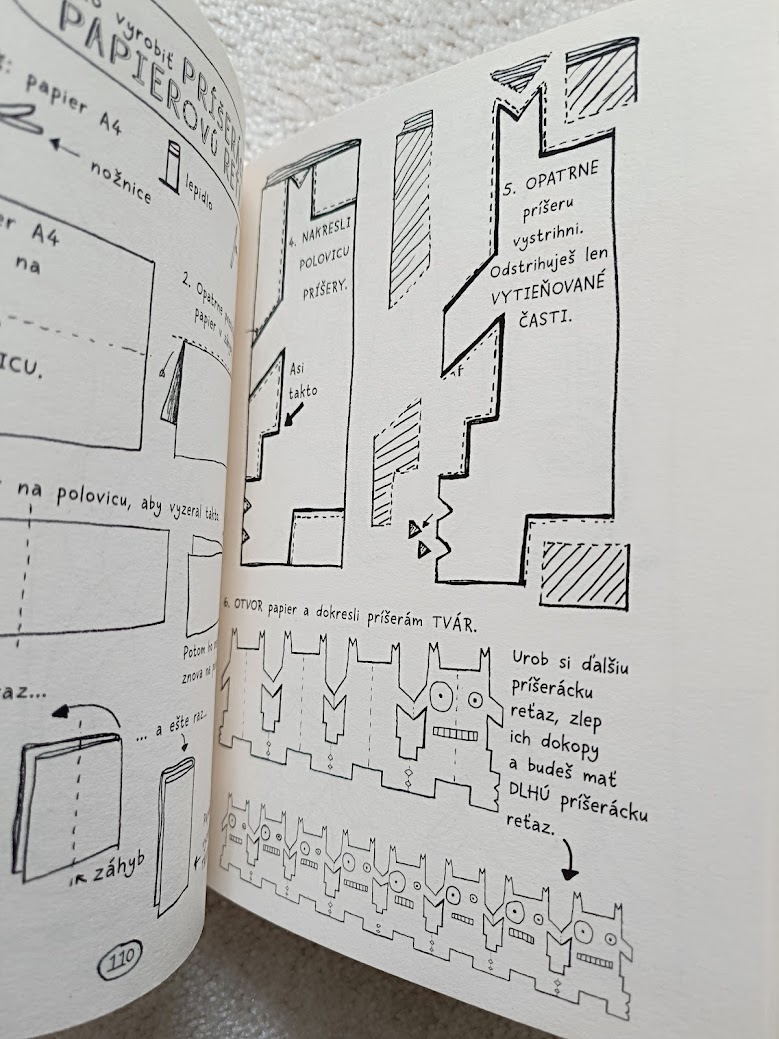 vyrobiť PRÍŠERI
PAPIEROVÚ
papier A4
nožnice
lepidlo
A4
na
2. Opatrne
papier
na polovicu, aby vyzeral takto
Potom ho
znova na
... a ešte raz...
záhyb
110
4. NAKRESLI
POLOVICU
PRÍŠERY.
Asi
takto
5. OPATRNE
príšeru
vystrihni.
Odstrihuješ len
VYTIEŇOVANÉ
ČASTI.
6. OTVOR papier a dokresli príšerám TVÁR.
Urob si ďalšiu
príšerácku
reťaz, zlep
ich dokopy
a budeš mať
DLHÚ príšerácku
reťaz.